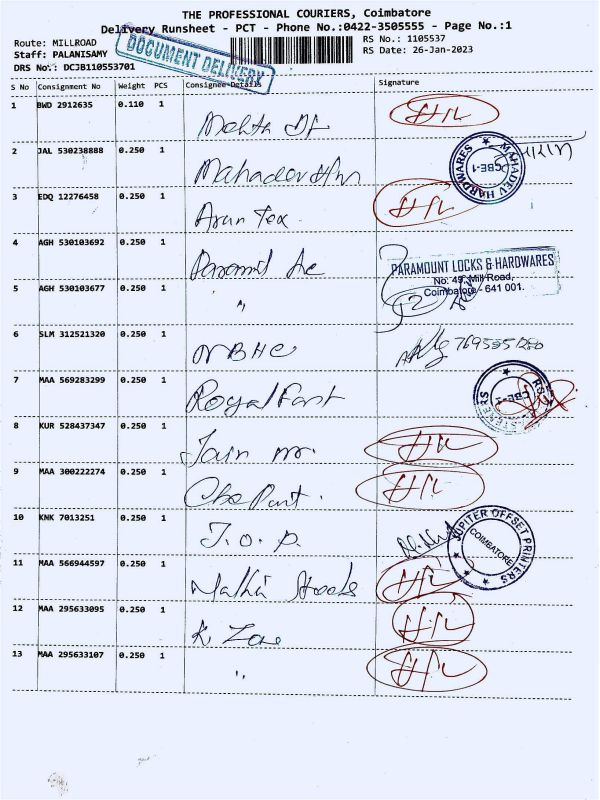 THE PROFESSIONAL COURIERS, Coimbatore
Delivery Runsheet - PCT - Phone No.:0422-3505555 - Page No.:1
Route: MILLROAD
RS No.: 1105537
Staff: PALANISAMY
RS Date: 26-Jan-2023
DRS No.: DCJB110553701
DOCUMENT DELIVERY
S No Consignment No Weight PCS Consignee Details Signature
1 BWD 2912635 0.110 1
2 JAL 530238888 0.250 1 Mahadev
MAHADEV HARDWARES
CBE-1
3 EDQ 12276458 0.250 1 Arun Tex
4 AGH 530103692 0.250 1
PARAMOUNT LOCKS & HARDWARES
No: 49, Mill Road,
Coimbatore - 641 001.
5 AGH 530103677 0.250 1 "
6 SLM 312521320 0.250 1 NBHC
7 MAA 569283299 0.250 1 Royal Fast
CBE-1
8 KUR 528437347 0.250 1 Jain
9 MAA 300222274 0.250 1
10 KNK 7013251 0.250 1 J.O.P.
JUPITER OFFSET PRINTERS
COIMBATORE
11 MAA 566944597 0.250 1
12 MAA 295633095 0.250 1 K Zone
13 MAA 295633107 0.250 1 "